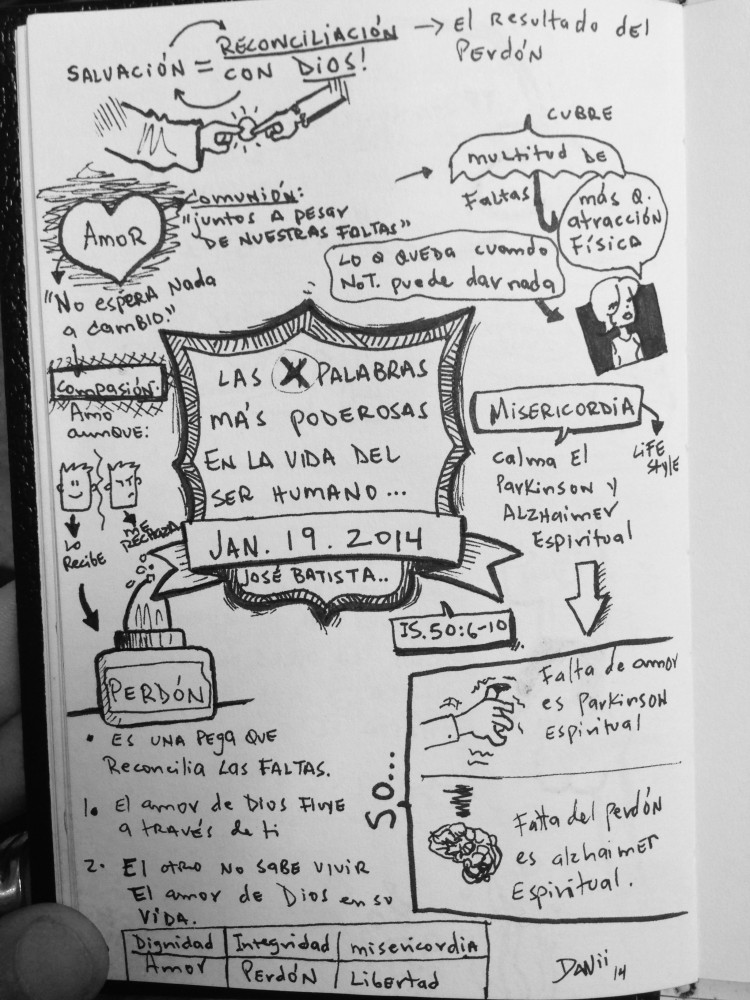 SALVACIÓN = RECONCILIACIÓN
CON DIOS!
→ El Resultado del
PERDÓN
AMOR
Comunión:
"juntos A pesar
DE NUESTRAS FALTAS"
CUBRE
multitud DE
Faltas
más Q.
atracción
Física
LO Q QUEDA cuando
NoT. puede dar nada
"No espera Nada
a cambio."
Compasión.
Amo
aunque:
LO
Recibe
ME
RECHAZA
LAS X PALABRAS
MÁS PODEROSAS
EN LA VIDA DEL
SER HUMANO...
JAN. 19. 2014
JOSÉ BATISTA..
IS. 50:6-10
MISERICORDIA
LIFE
STYLE
calma El
Parkinson y
ALZHAIMER
Espiritual
PERDÓN
• Es una pega que
Reconcilia LAS FALTAS.
1. El amor de Dios Fluye
a través de ti
2. El otro No SABE VIVIR
El amor de Dios en su
VIDA.
SO...
Falta de amor
es Parkinson
Espiritual
Falta del perdón
es alzhaimer
Espiritual.
Dignidad | Integridad | misericordia
Amor | Perdón | Libertad
DANii 14